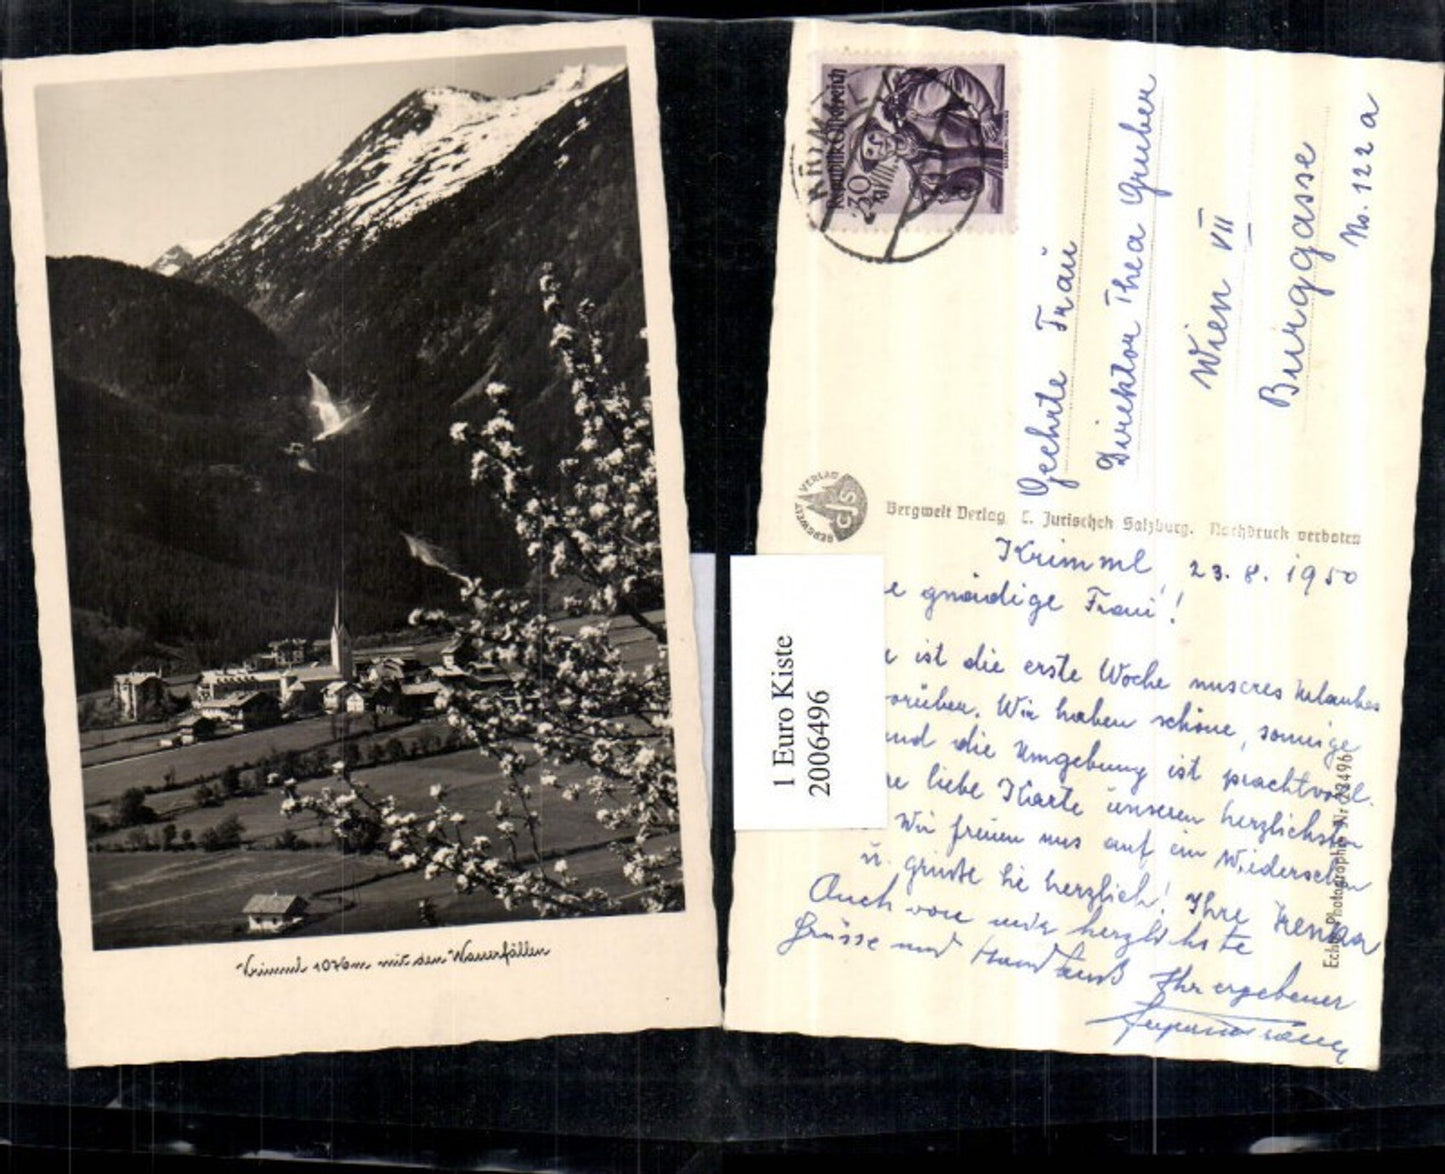 Krimml 1076m mit den Wasserfällen
Republik Österreich
30
KRIMML
Geehrte Frau
Direktor Thea Gruber
Wien VII
Burggasse
No. 122 a
BERGWELT VERLAG
CJS
Bergwelt Verlag C. Jurischek Salzburg. Nachdruck verboten
Krimml, 23. 8. 1950
e gnädige Frau!
ist die erste Woche unseres Urlaubes
orüber. Wir haben schöne, sonnige
und die Umgebung ist prachtvoll.
re liebe Karte unseren herzlichsten
Wir freuen uns auf ein Wiedersehen
u. grüße Sie herzlich! Ihre
Auch von mir herzlichste
Grüsse und Handkuß Ihr ergebener
1 Euro Kiste
2006496